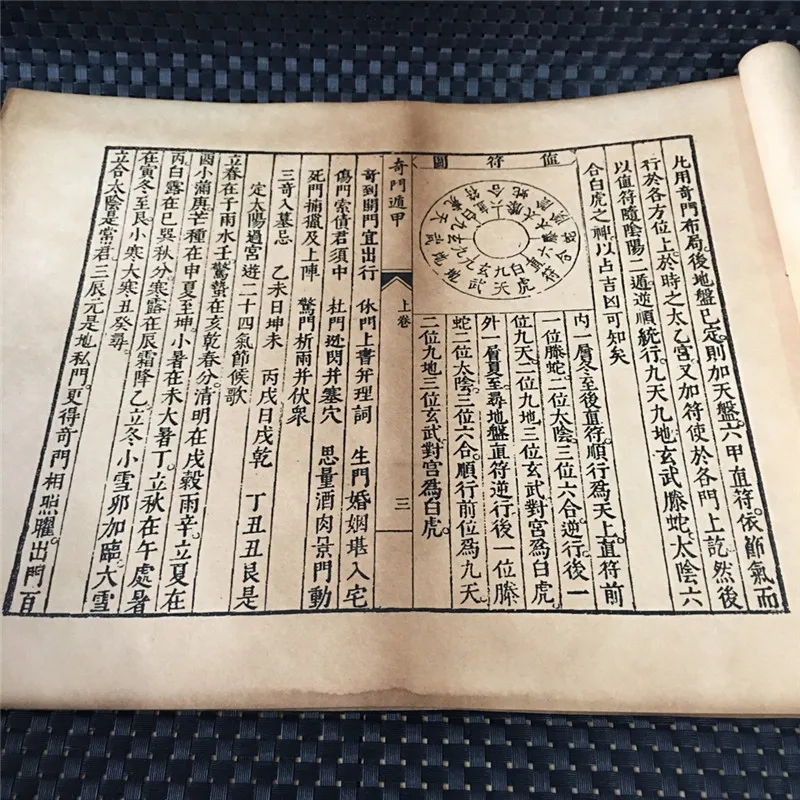 凢用奇門布局後地盤已定則加天盤六甲直符依節氣而
行於各方位上於時之太乙宮又加符使於各門上訖然後
以值符隨陰陽二遁逆順統行九天九地玄武螣蛇太陰六
合白虎之神以占吉凶可知矣
值符圖
內一層冬至後直符順行爲天上直符前
一位螣蛇二位太陰三位六合逆行後一
位九天二位九地三位玄武對宮爲白虎
外一層夏至尋地盤直符逆行後一位螣
蛇二位太陰三位六合順行前位爲九天
二位九地三位玄武對宮爲白虎
奇門遁甲 上卷 三
奇到開門宜出行 休門上書并理詞 生門婚姻堪入宅
傷門索債君須中 杜門迯閃并塞穴 思量酒肉景門動
死門捕獵及上陣 驚門析雨并伏衆
三奇入墓忌 乙未日坤未 丙戌日戌乾 丁丑丑艮是
定太陽過宮遊二十四氣節候歌
立春在子雨水壬驚蟄在亥乾春分清明在戌穀雨辛立夏在
酉小滿庚芒種在申夏至坤小暑在未大暑丁立秋在午處暑
丙白露在巳巽秋分寒露在辰霜降乙立冬小雪卯加臨大雪
在寅冬至艮小寒大寒丑癸尋
立合太陰是常君三辰元是地私門更得奇門相照曜出門百